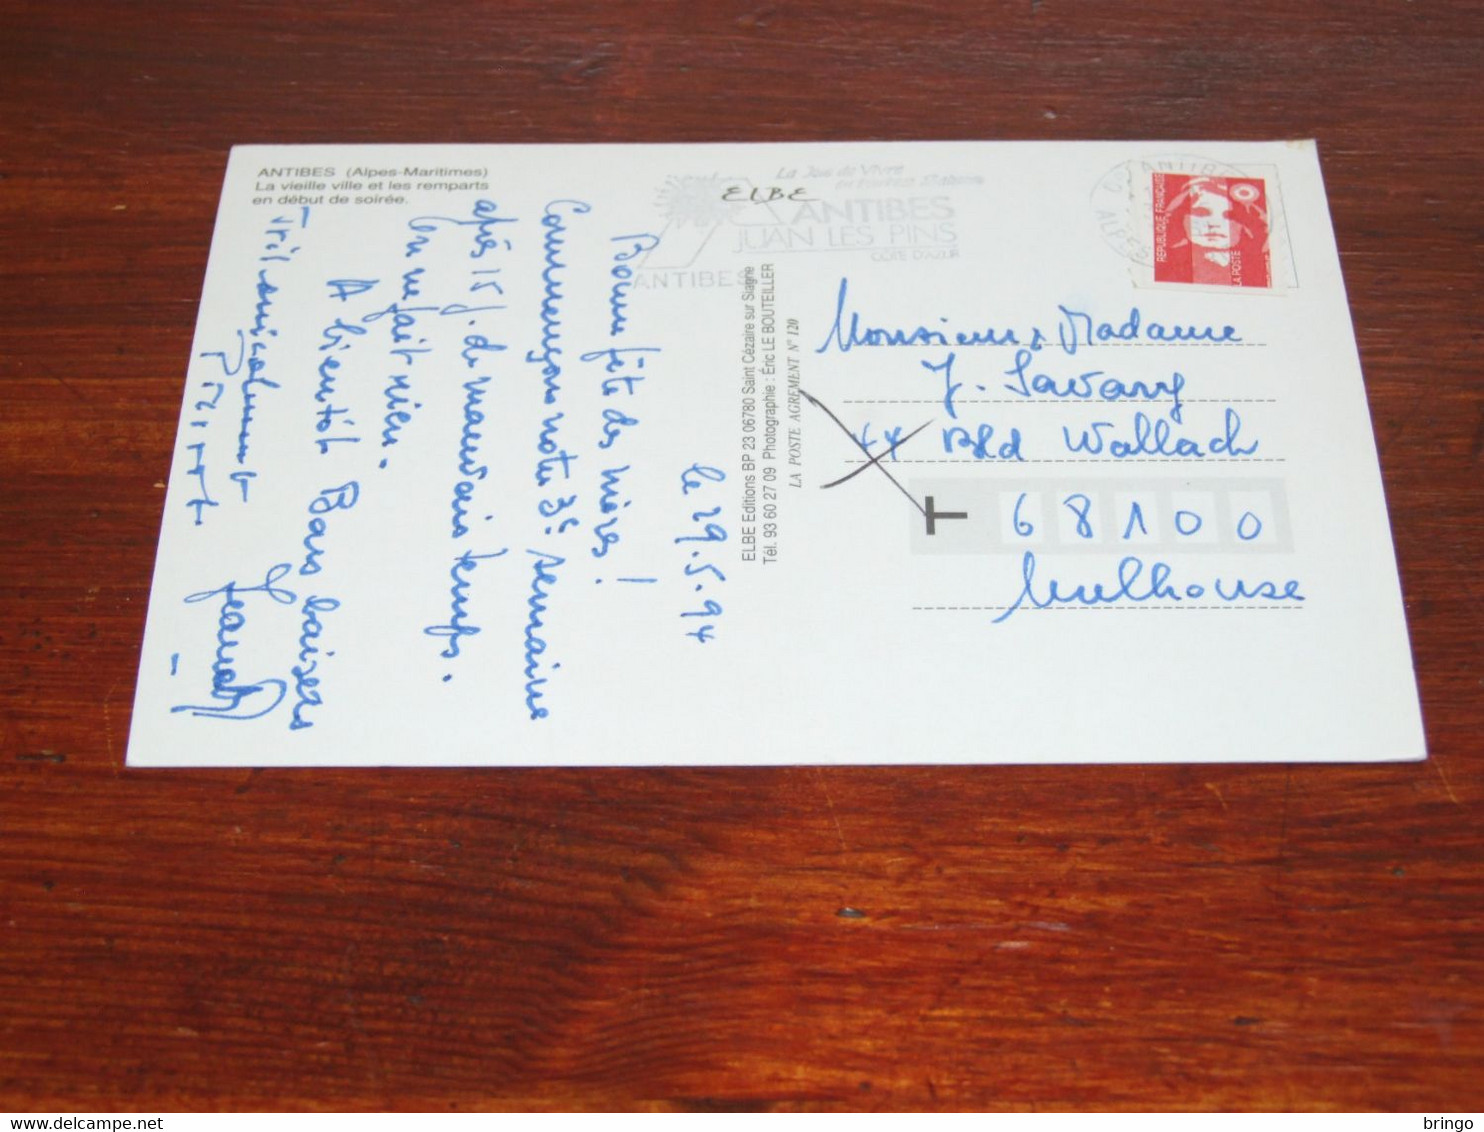 ANTIBES (Alpes-Maritimes)
La vieille ville et les remparts
en début de soirée.
ELBE
La Joie de Vivre
ANTIBES
JUAN LES PINS
COTE D'AZUR
ANTIBES
REPUBLIQUE FRANÇAISE
LA POSTE
le 29.5.94
Bonne fête des mères!
Commençons notre 3e semaine
après 15 j. de mauvais temps.
On ne fait rien.
A bientôt Bons baisers
Très amicalement
ELBE Editions BP 23 06780 Saint Cézaire sur Siagne
Tél. 93 60 27 09 Photographie : Éric LE BOUTEILLER
LA POSTE AGREMENT N° 120
Monsieur & Madame
J. Savary
44 Bld Wallach
T
68100
Mulhouse
delcampe.net
bringo